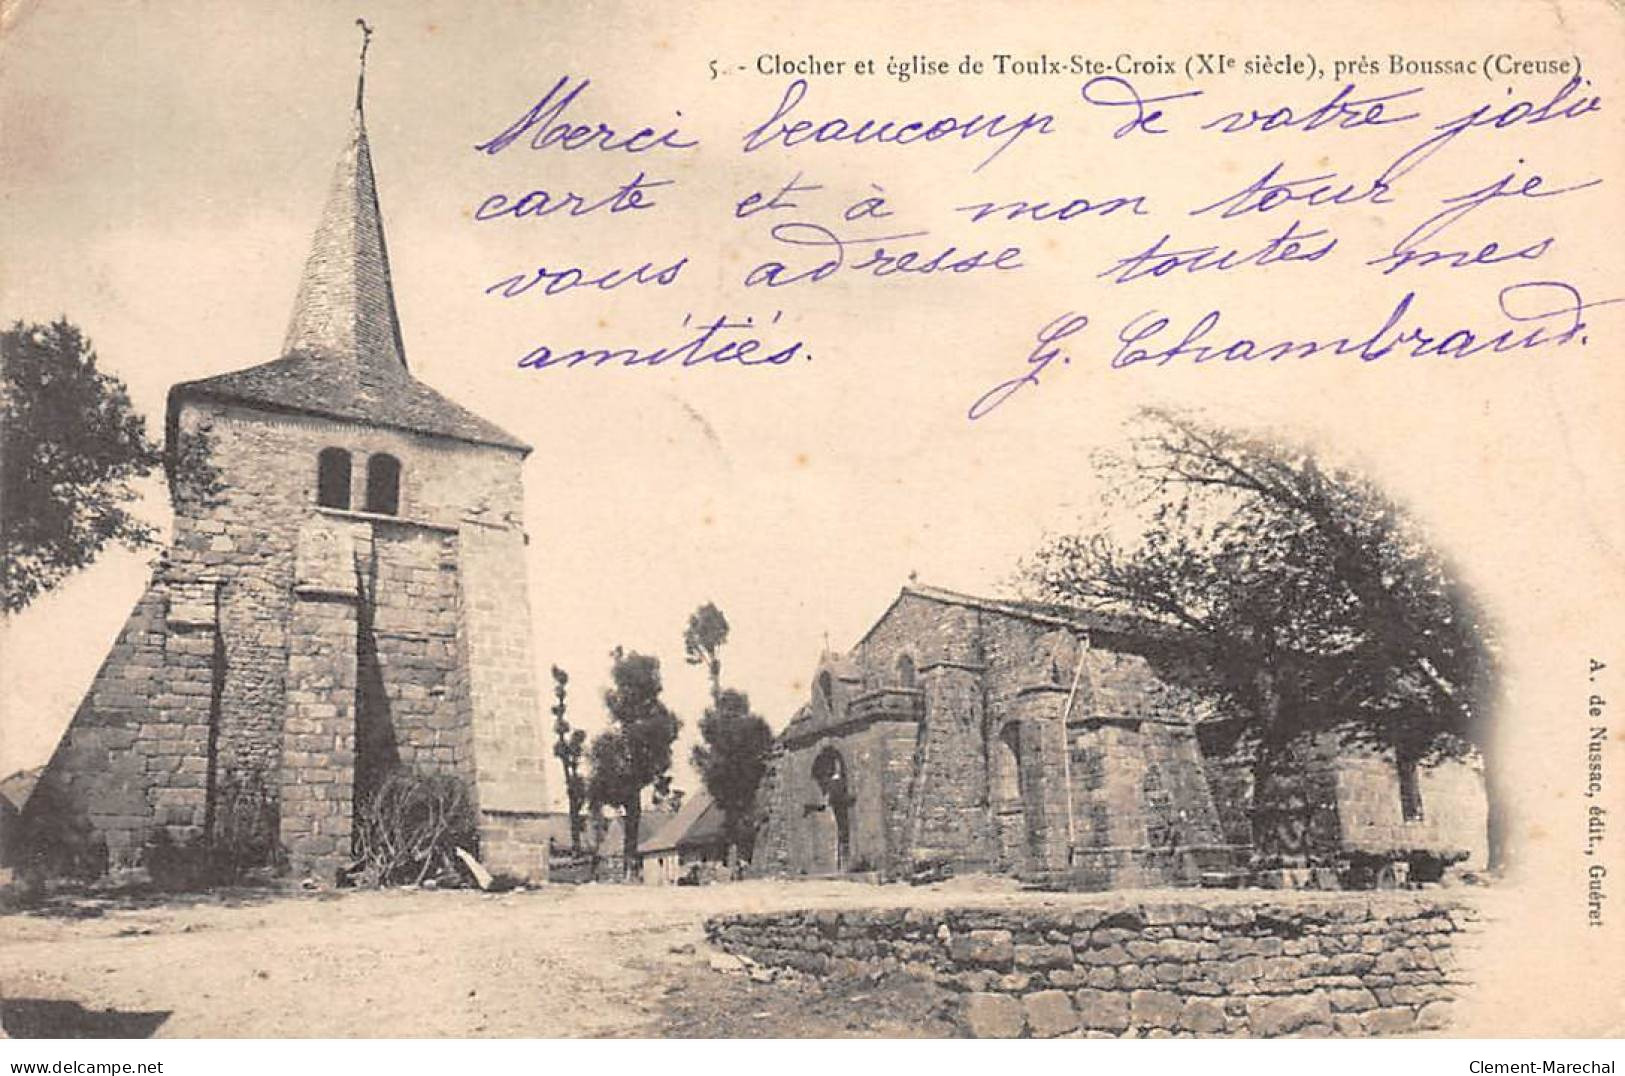 5. - Clocher et église de Toulx-Ste-Croix (XIe siècle), près Boussac (Creuse)
Merci beaucoup de votre jolie
carte et à mon tour je
vous adresse toutes mes
amitiés. G. Chambraud.
A. de Nussac, édit., Guéret
www.delcampe.net
Clement-Marechal